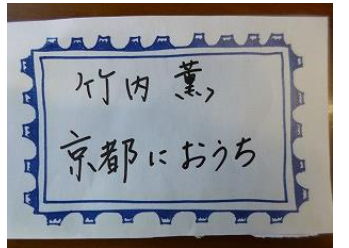 竹内 薫
京都におうち